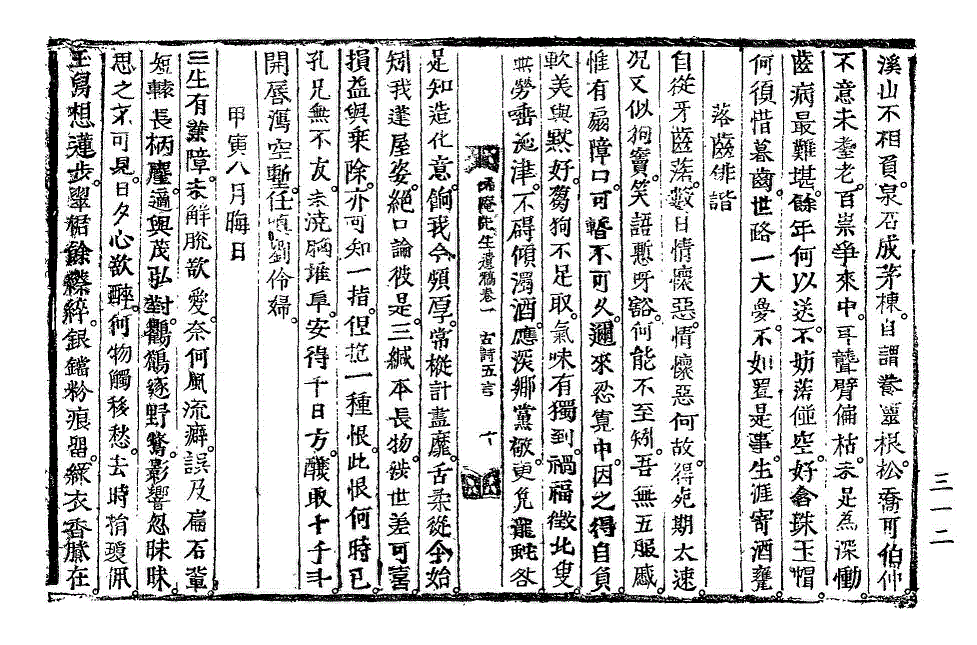 溪山不相負泉石成茅棟自謂養靈根松喬可伯仲
不意未耋老百祟爭來中耳聾臂偏枯未是為深慟
齒病最難堪餘年何以送不妨落碰空好含珠玉帽
何須惜暮齒世路一大夢不如置是事生涯寄酒甕
落齒俳諧
自從牙齒落數日情懷惡情懷惡何故得死期太速
況又似狗竇笑語慙呀豁何能不至矧吾無五服慼
惟有扇障口可暫不可久邇來忍寬中因之得自負
軟美與默好芻狗不足取氣味有獨到禍福徵北叟
無勞唾涎津不碍傾濁酒應深鄉黨敬更免寵眊咎
先生遺稿卷一 古詩五言 十
是知造化意餉我今頗厚常樅計盡靡舌柔從今始
矧我蓬屋姿絕口論彼是三緘本長物涉世差可喜
損益與乘除亦可知一指但挖一種恨此恨何時已
孔兄無不友未澆胸堆阜安得千日方釀取十千斗
開唇瀉空壑任嗔劉伶婦
甲寅八月晦日
三生有業障未解脫欲愛奈何風流癖誤及扁石輩
短轅長柄麈適與茂弘對鸛鶴逐野鶩影響忽昧昧
思之不可見日夕心欲醉何物觸移愁去時梢瓊佩
玉舄想蓮步翠裾餘縩綷銀鐺粉痕留綠衣香膩在
三一二